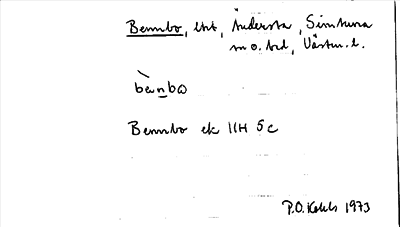 Bennbo, lht, Ändersta, Simtuna
sn o. hd, Västm. l.
bènbo
Bennbo ek 11H 5c
P.O. 1973